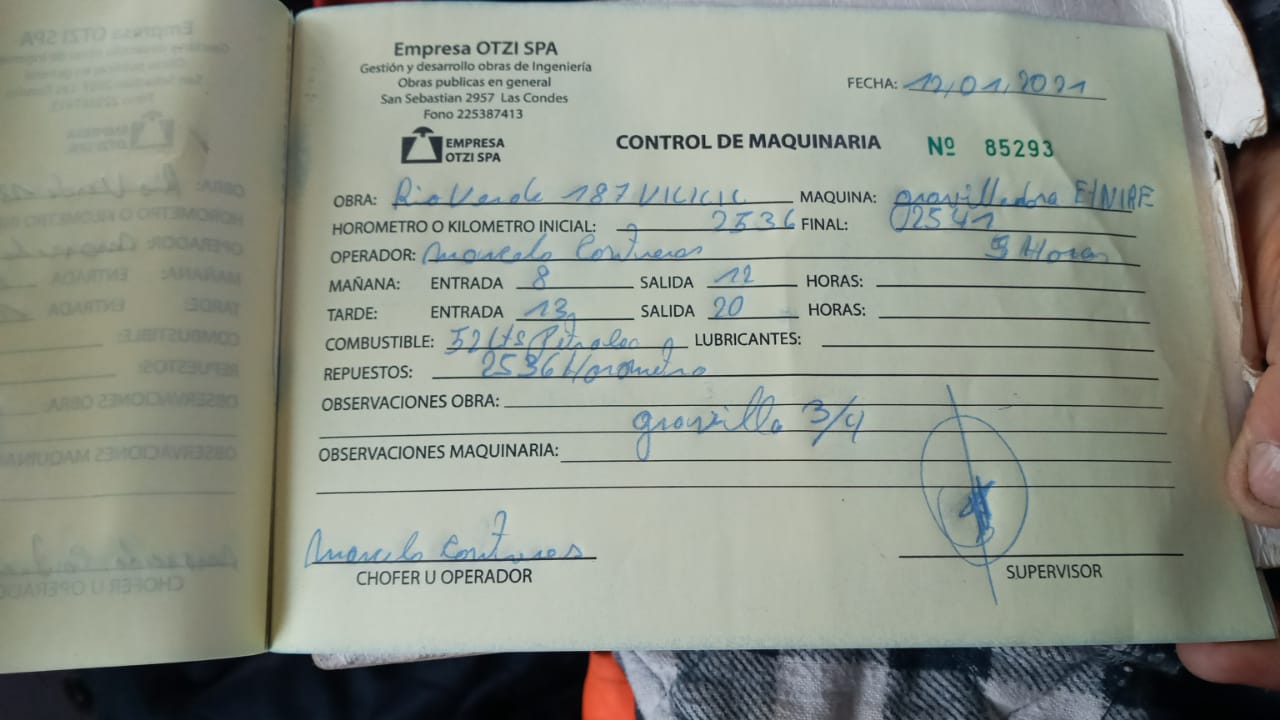 Empresa OTZI SPA
Gestión y desarrollo obras de Ingeniería
Obras publicas en general
San Sebastian 2957 Las Condes
Fono 225387413
FECHA: 12,01,2021
EMPRESA
OTZI SPA
CONTROL DE MAQUINARIA Nº 85293
OBRA: Rio Verde 187 MAQUINA: gravilladora
HOROMETRO O KILOMETRO INICIAL: 2536 FINAL: 2541
OPERADOR: Marcelo Contreras Horas
MAÑANA: ENTRADA 8 SALIDA 12 HORAS:
TARDE: ENTRADA 13 SALIDA 20 HORAS:
COMBUSTIBLE: 52 Lts LUBRICANTES:
REPUESTOS: 2536 Horometro
OBSERVACIONES OBRA:
gravilla 3/4
OBSERVACIONES MAQUINARIA:
Marcelo Contreras
CHOFER U OPERADOR
SUPERVISOR